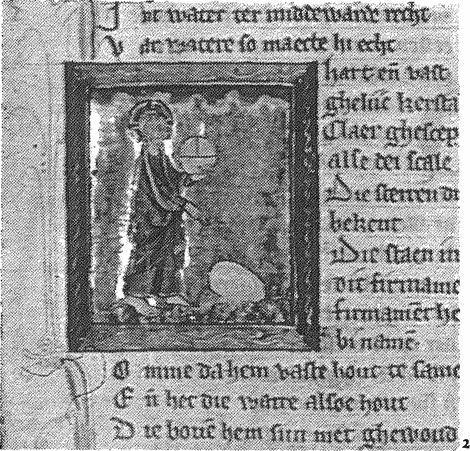 In dat water ter middewarde recht
Van watere so maecte hi echt
hart en̄ vast
ghelijc kersta
Claer ghescep
alse dei scale
Die sterren di
bekent
Die staen in
dit firmame
firmamēt he
bi namē
Omme dat hem vaste hout te same
En̄ het die watre alsoe hout
Die bouē hem sijn met ghewoud
2